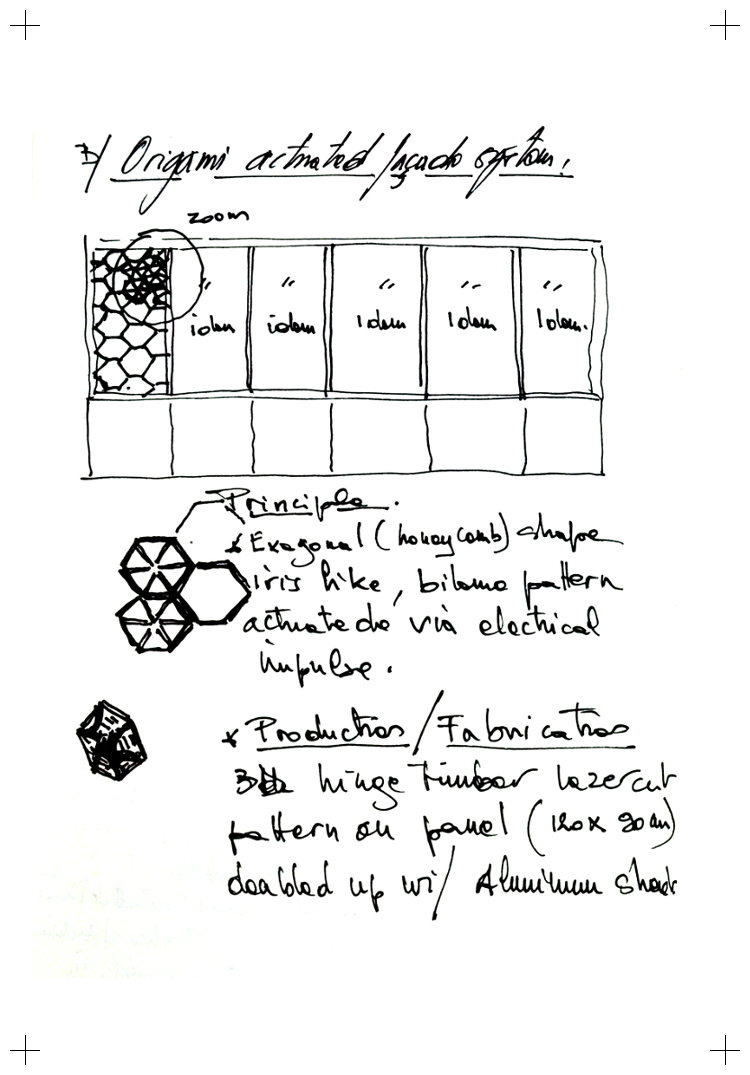 3/ Origami actuated façade system.
zoom
" " " " "
idem idem idem idem idem.
Principle.
* Exagonal (honeycomb) shape
iris like, bilame pattern
actuated via electrical
impulse.
* Production/Fabrication
hinge timber lazercut
pattern on panel (120 x 90 cm)
doubled up w/ Aluminum sheet